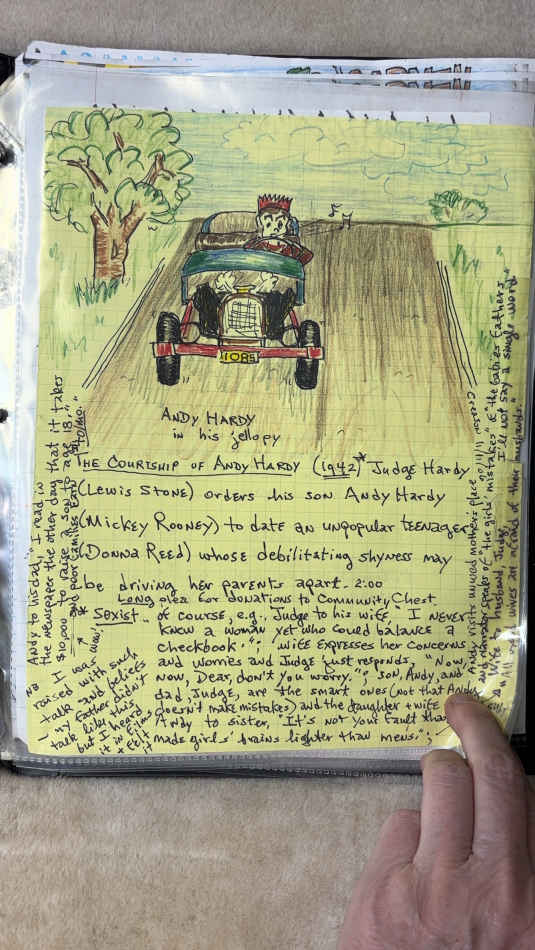 1085
ANDY HARDY
in his jellopy
THE COURTSHIP OF ANDY HARDY (1942)* Judge Hardy
(Lewis Stone) orders his son Andy Hardy
(Mickey Rooney) to date an unpopular teenager
(Donna Reed) whose debilitating shyness may
be driving her parents apart. 2:00
Long plea for donations to Community Chest
* Sexist, of course, e.g., Judge to his wife "I never
knew a woman yet who could balance a
checkbook."; wife expresses her concerns
and worries and Judge just responds, "Now,
Now, Dear, don't you worry."; son, Andy, and
dad, Judge, are the smart ones (not that Andy
doesn't make mistakes) and the daughter + wife
Andy to sister, "It's not your fault that
made girls' brains lighter than mens.";
Andy to his dad, "I read in
the newspaper the other day that it takes
$10,000 to raise a son to age 18,"
and poor families earn
/mo.
I was
raised with such
talk and beliefs
my father didn't
talk like this
but I heard
it in films
+ felt
it
Andy visits unwed mothers place
and narrator speaks of "the girls' mistakes"
the babies fathers
Wife to husband, Judge, "I'll not say a single word."
All wives are afraid of their husbands.